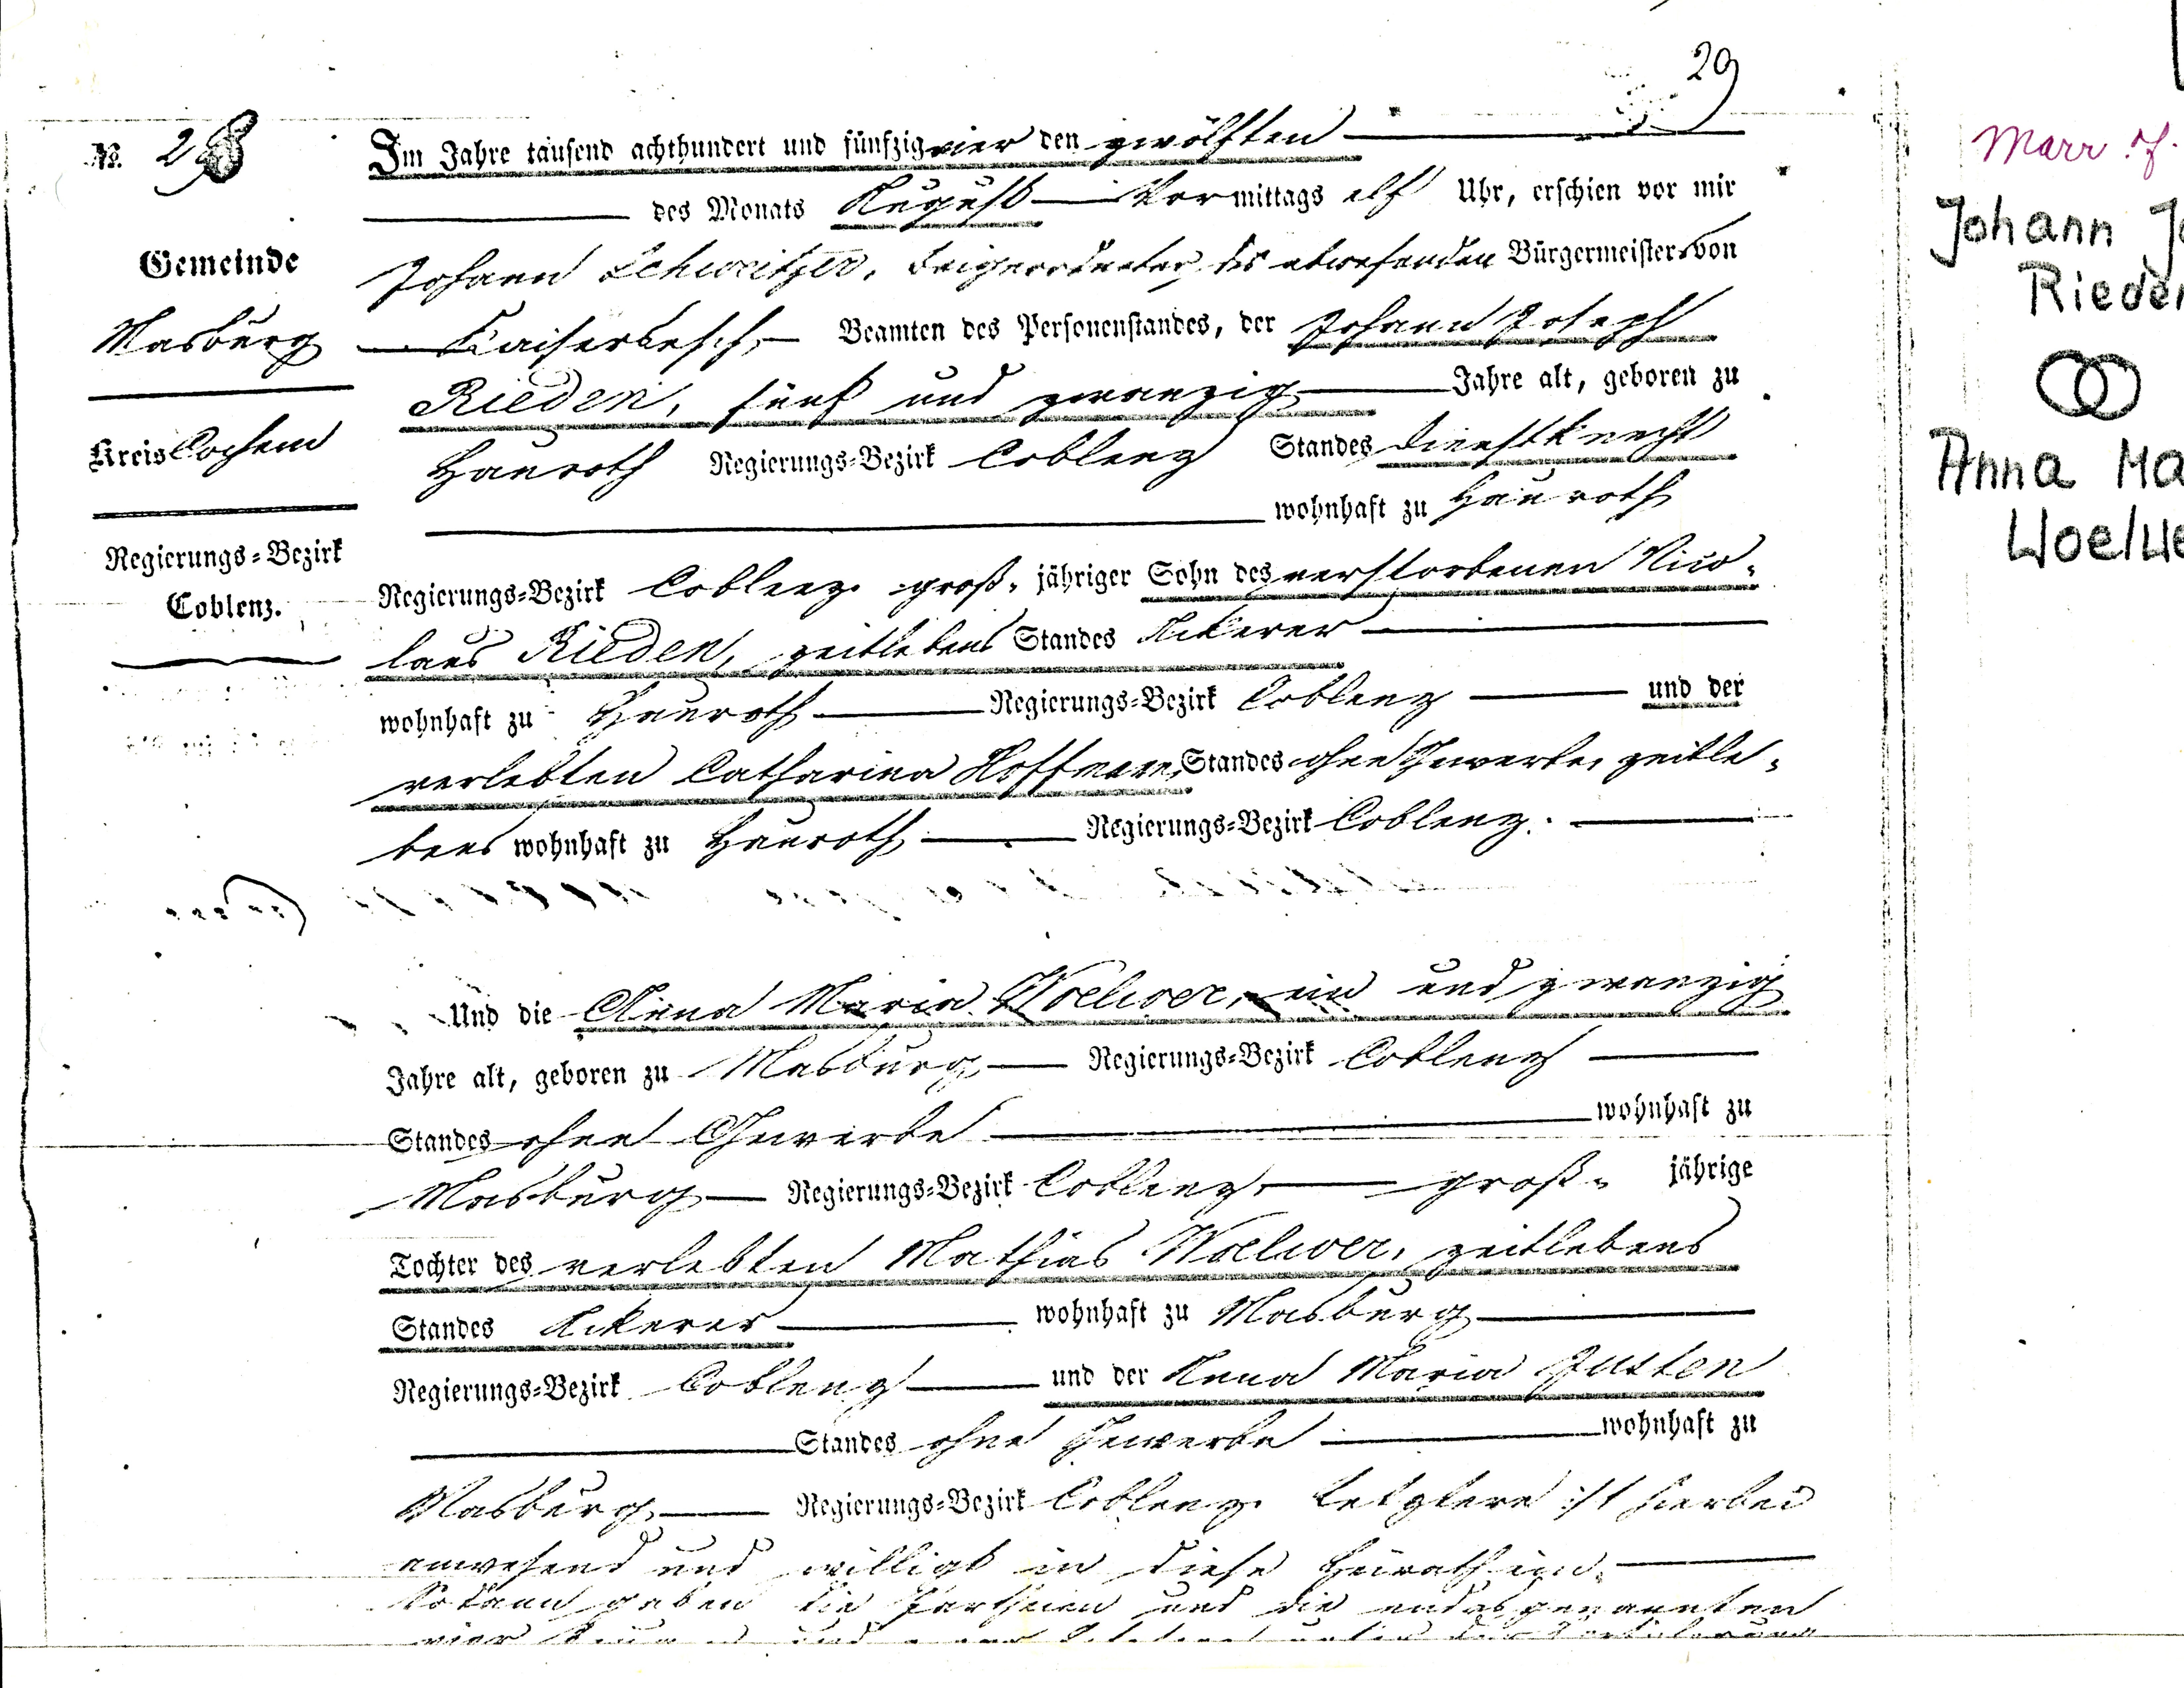 29
№. 28
Im Jahre tausend achthundert und fünfzig vier den zwölften
des Monats August Vormittags elf Uhr, erschien vor mir
Gemeinde
Johann Schweitzer, Beigeordneter des abwesenden Bürgermeisters von
Masburg
Kaisersesch, Beamten des Personenstandes, der Johann Joseph
Rieden, fünf und zwanzig Jahre alt, geboren zu
Kreis Cochem
Hauroth Regierungs-Bezirk Coblenz Standes Dienstknecht
wohnhaft zu Hauroth
Regierungs-Bezirk
Coblenz.
Regierungs-Bezirk Coblenz, groß-jähriger Sohn des verstorbenen Nico-
laus Rieden, zeitlebens Standes Ackerer
wohnhaft zu Hauroth Regierungs-Bezirk Coblenz und der
verlebten Catharina Hoffmann, Standes ohne Gewerbe, zeitle-
bens wohnhaft zu Hauroth Regierungs-Bezirk Coblenz.
Und die Anna Maria Woelwer, ein und zwanzig
Jahre alt, geboren zu Masburg Regierungs-Bezirk Coblenz
Standes ohne Gewerbe wohnhaft zu
Masburg Regierungs-Bezirk Coblenz, groß- jährige
Tochter des verlebten Mathias Woelwer, zeitlebens
Standes Ackerer wohnhaft zu Masburg
Regierungs-Bezirk Coblenz und der Anna Maria Justen
Standes ohne Gewerbe wohnhaft zu
Masburg Regierungs-Bezirk Coblenz. Letztere ist hierbei
anwesend und willigt in diese Heirath ein.
Sodann gaben die Partheien und die endesgenannten
vier
Marr. of.
Johann Jo
Rieden
Anna Ma
Woelwe